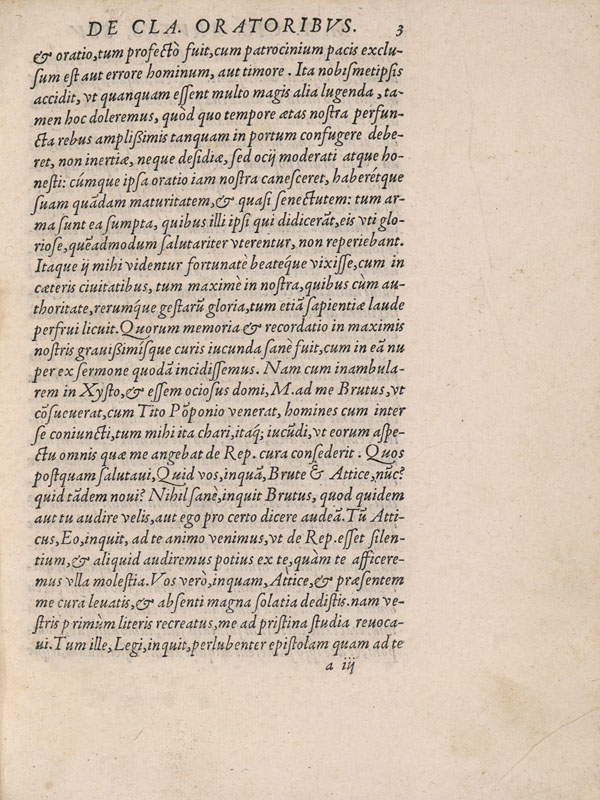 DE CLA. ORATORIBVS. 3
& oratio, tum profectò fuit, cum patrocinium pacis exclu-
sum est aut errore hominum, aut timore. Ita nobismetipsis
accidit, vt quanquam essent multo magis alia lugenda, ta-
men hoc doleremus, quòd quo tempore ætas nostra perfun-
cta rebus amplissimis tanquam in portum confugere debe-
ret, non inertiæ, neque desidiæ, sed ocij moderati atque ho-
nesti: cúmque ipsa oratio iam nostra canesceret, haberétque
suam quãdam maturitatem, & quasi senectutem: tum ar-
ma sunt ea sumpta, quibus illi ipsi qui didicerãt, eis vti glo-
riose, quẽadmodum salutariter vterentur, non reperiebant.
Itaque ij mihi videntur fortunatè beatéque vixisse, cum in
cæteris ciuitatibus, tum maximè in nostra, quibus cùm au-
thoritate, rerumq́ue gestarũ gloria, tum etiã sapientiæ laude
perfrui licuit. Quorum memoria & recordatio in maximis
nostris grauissimísque curis iucunda sanè fuit, cum in eã nu
per ex sermone quodã incidissemus. Nam cum inambula-
rem in Xysto, & essem ociosus domi, M. ad me Brutus, vt
cõsueuerat, cum Tito Põponio venerat, homines cum inter
se coniuncti, tum mihi ita chari, itaq; iucũdi, vt eorum aspe-
ctu omnis quæ me angebat de Rep. cura consederit. Quos
postquam salutaui, Quid vos, inquã, Brute & Attice, nũc?
quid tãdem noui? Nihil sanè, inquit Brutus, quod quidem
aut tu audire velis, aut ego pro certo dicere audeã. Tũ Atti-
cus, Eo, inquit, ad te animo venimus, vt de Rep. esset silen-
tium, & aliquid audiremus potius ex te, quàm te afficere-
mus vlla molestia. Vos verò, inquam, Attice, & præsentem
me cura leuatis, & absenti magna solatia dedistis. nam ve-
stris primùm literis recreatus, me ad pristina studia reuoca-
ui. Tum ille, Legi, inquit, perlubenter epistolam quam ad te
a iij